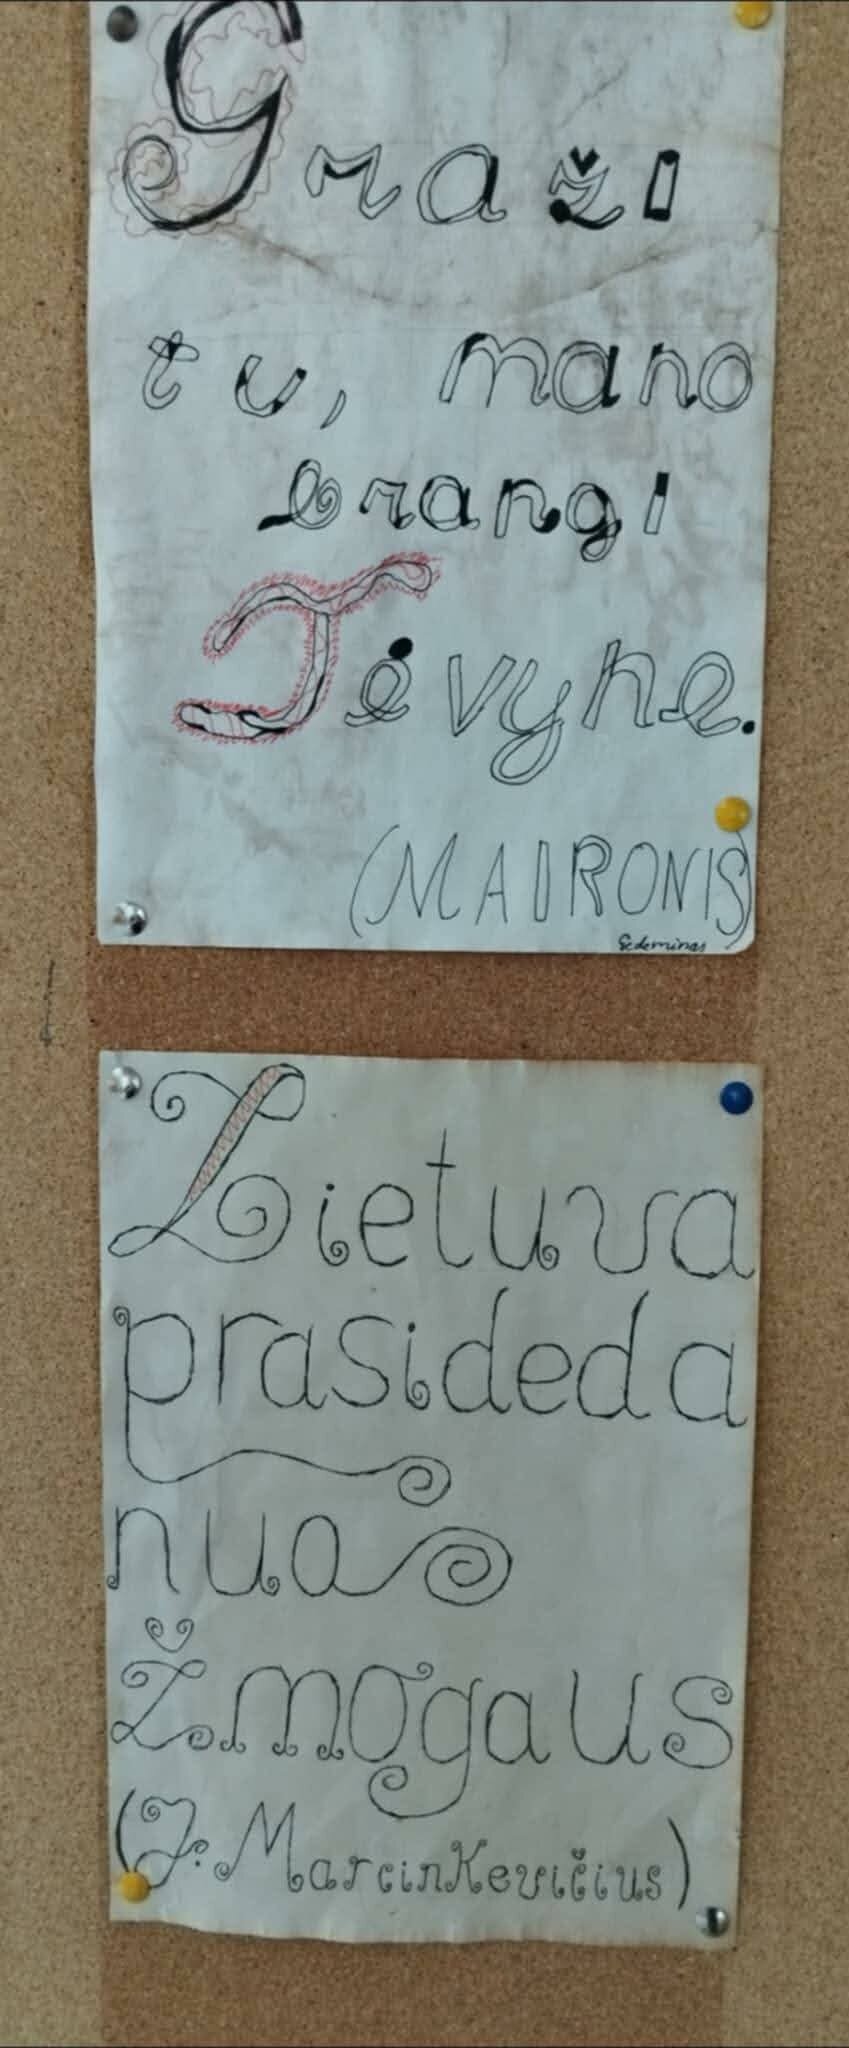 Graži
tu, mano
brangi
Tėvyne.
(MAIRONIS)
Gedeminas
Lietuva
prasideda
nuo
Žmogaus
(J. Marcinkevičius)